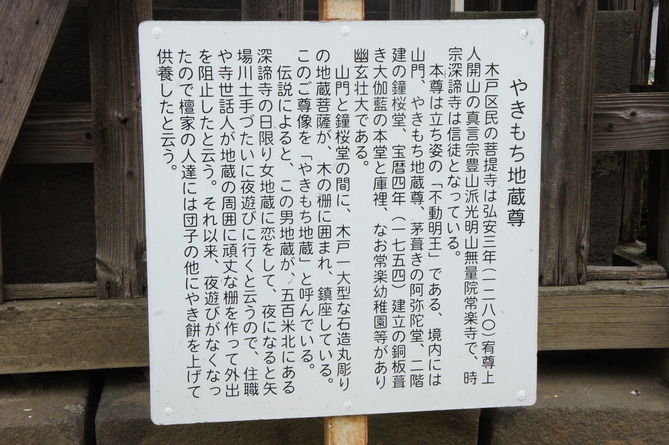 やきもち地蔵尊
木戸区民の菩提寺は弘安三年(一二八〇)宥尊上
人開山の真言宗豊山派光明山無量院常楽寺で、時
宗深諦寺は信徒となっている。
本尊は立ち姿の「不動明王」である、境内には
山門、やきもち地蔵尊、茅葺きの阿弥陀堂、二階
建の鐘桜堂、宝暦四年(一七五四)建立の銅板葺
き大伽藍の本堂と庫裡、なお常楽幼稚園等があり
幽玄壮大である。
山門と鐘桜堂の間に、木戸一大型な石造丸彫り
の地蔵菩薩が、木の柵に囲まれ、鎮座している。
このご尊像を「やきもち地蔵」と呼んでいる。
伝説によると、この男地蔵が、五百米北にある
深諦寺の日限り女地蔵に恋をして、夜になると矢
場川土手づたいに夜遊びに行くと云うので、住職
や寺世話人が地蔵の周囲に頑丈な柵を作って外出
を阻止したと云う。それ以来、夜遊びがなくなっ
たので檀家の人達には団子の他にやき餅を上げて
供養したと云う。